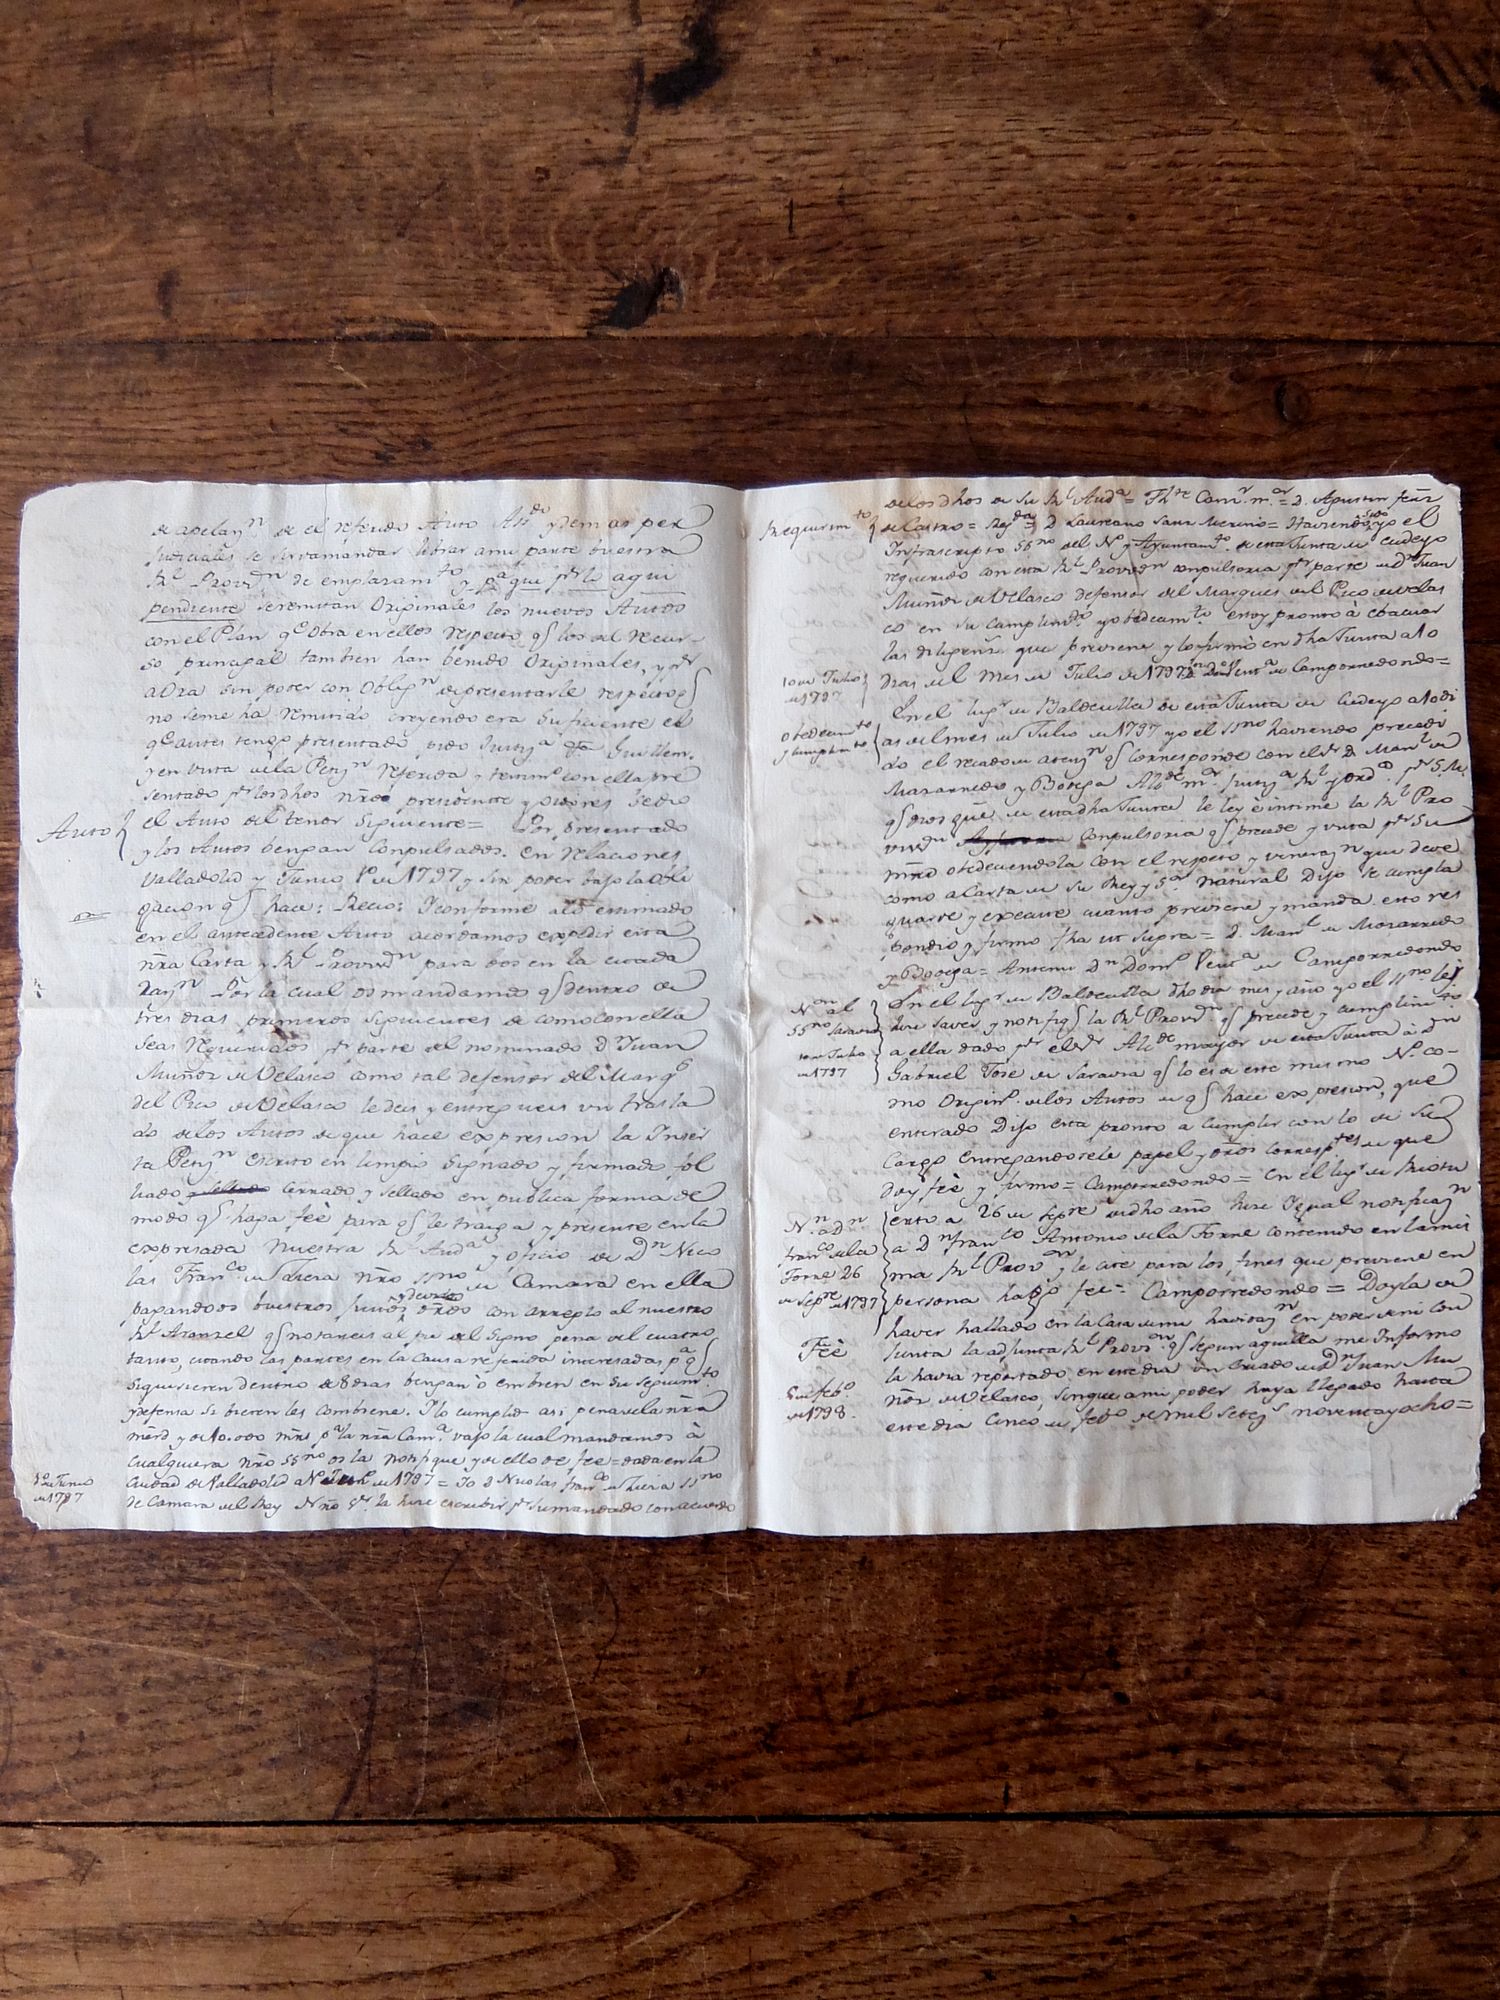 de apelaz.n de el referido Auto At.do y demas per
judiciales se sirva mandar librar a mi parte buestra
R.l Provis.n de emplazam.to y p.a que p.r lo aqui
pendiente se remitan Originales los nuevos Autos
con el Plan q.e obra en ellos respecto q los del recur-
so principal tambien han benido Originales, y p.r
aora sin poder con oblig.n de presentarle respecto q
no se me ha remitido creyendo era suficiente el
q.e antes tengo presentado pido Justiz.a
y en vista de la Petiz.n referida y testim.o con ella pre
sentado p.r los dhos nro presidente y oidores se dio
Auto
el Auto del tenor siguiente= Por presentado
y los Autos bengan Conpulsados. en relaciones
Valladolid y Junio 1º de 1797 y sin poder bajo la obli
gacion q hace: Recio: Y conforme a lo estimado
en el antecedente Auto acordamos expedir esta
nra Carta y R.l Provis.n para vos en la citada
Raz.n Por la cual os mandamos q dentro de
tres dias primeros siguientes de como con ella
seais Requeridos p.r parte del nominado D. Juan
Muñoz de Velasco como tal defensor del Marq.s
del Pico de Velasco le deis y entregueis un trasla
do de los Autos de que hace expresion la Inser
ta Petiz.n escrito en limpio signado y firmado, fol
liado y sellado cerrado y sellado en publica forma de
modo q haga feè para q le traiga y presente en la
expresada Nuestra R.l Aud.a y oficio de D.n Nico
las Fran.co de Liera nro ss.no de Camara en ella
pagandoos buestros justos y devidos dros con arreglo al nuestro
R.l Aranzel q notareis al pie del signo pena del cuatro
tanto, citando las partes en la causa referida interesadas p.a q
si quisieren dentro de 8 dias bengan ò embien en su seguim.to
y defensa si bieren les combiene. Y lo cumplid asi pena de la nra
merd y de 10.000 mrs p.a la nra Cam.a vajo la cual mandamos à
cualquiera nro ss.no os la notifique y de ello de fee= dada en la
1º de Junio
de 1797
Ciudad de Valladolid a 1º de Junio de 1797 = Yo D. Nicolas Fran.co de Liera ss.no
de Camara del Rey N.ro S.r la hice escribir p.r su mandado con acuerdo
de los dhos de su R.l Aud.a = Th.te Can.r m.or = D. Agustin fern.z
Requirim.to
de Castro = Reg.da = D. Laureano Sanz Merino = Haviendo sido yo el
Infrascripto ss.no del N.o y Ayuntam.to de esta Junta de Cudeyo
requerido con esta R.l Provis.n conpulsoria p.r parte de D.n Juan
Muñoz de Velasco defensor del Marques del Pico de Velas
co en su cumplim.to y obedecim.to estoy pronto à ebacuar
las diligenz.s que previene y lo firmo en dha Junta a 10
10 de Julio
de 1797
dias del Mes de Julio de 1797 = Dom.o Vent.a de Camporredondo=
Obedecim.to
y Cumplim.to
En el lug.r de Baldecilla de esta Junta de Cudeyo a 10 di
as del mes de Julio de 1797 yo el ss.no haviendo precedi
do el recado de atenz.n q corresponde con el s.r D. Man.l de
Mazarredo y Bodega Alc.de m.or Justiz.a R.l y ord.a p.r S. M.
q Dios gũe de esta dha Junta le ley è intime la R.l Pro
vis.n Conpulsoria q precede y vista p.r su
mrd obedeciendola con el respeto y veneraz.n que deve
como a Carta de su Rey y S.or natural Dijo se cumpla
guarde y execute cuanto previene y manda. esto res
pondio y firmo fha ut supra = D. Man.l de Mazarredo
y Bodega = Antemi D.n Dom.o Vent.a de Camporredondo
N.on al
ss.no Saravia
10 de Julio
de 1797
En el lug.r de Baldecilla dho dia mes y año yo el ss.no ley
hice saver, y notifiq la R.l Provis.n q precede y cumplim.to
a ella dado p.r el s.r Alc.de mayor de esta Junta à D.n
Gabriel Jose de Saravia q lo es de este mismo N.o co-
mo Origin.o de los Autos de q hace expresion, que
enterado Dijo esta pronto a cumplir con lo de su
cargo entregandosele papel y dros corresp.tes de que
doy feè y firmo = Camporredondo = En el lug.r de Riotu
N.n a D.n
Fran.co de la
Torre 26
de Sep.re de 1797
erto a 26 de Sep.re de dho año hice Igual notificaz.n
a D.n Fran.co Antonio de la Torre contenido en la mis
ma R.l Prov.on y le cite para los fines que previene en
persona hago feè = Camporredondo = Doyla de
Feè
haver hallado en la Casa de mi havitaz.n en poder de mi con
junta la adjunta R.l Provis.on q segun aquella me Informo
la havia reportado en este dia un Criado de D.n Juan Mu
5 de feb.o
de 1798
ñoz de Velasco, sin que a mi poder haya llegado hasta
este dia Cinco de feb.o de mil setez.s noventa y ocho =